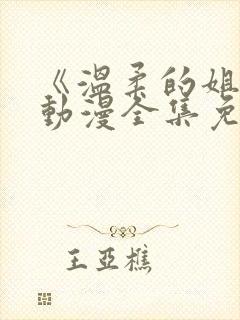 《温柔的姐
动漫全集免
王亚樵